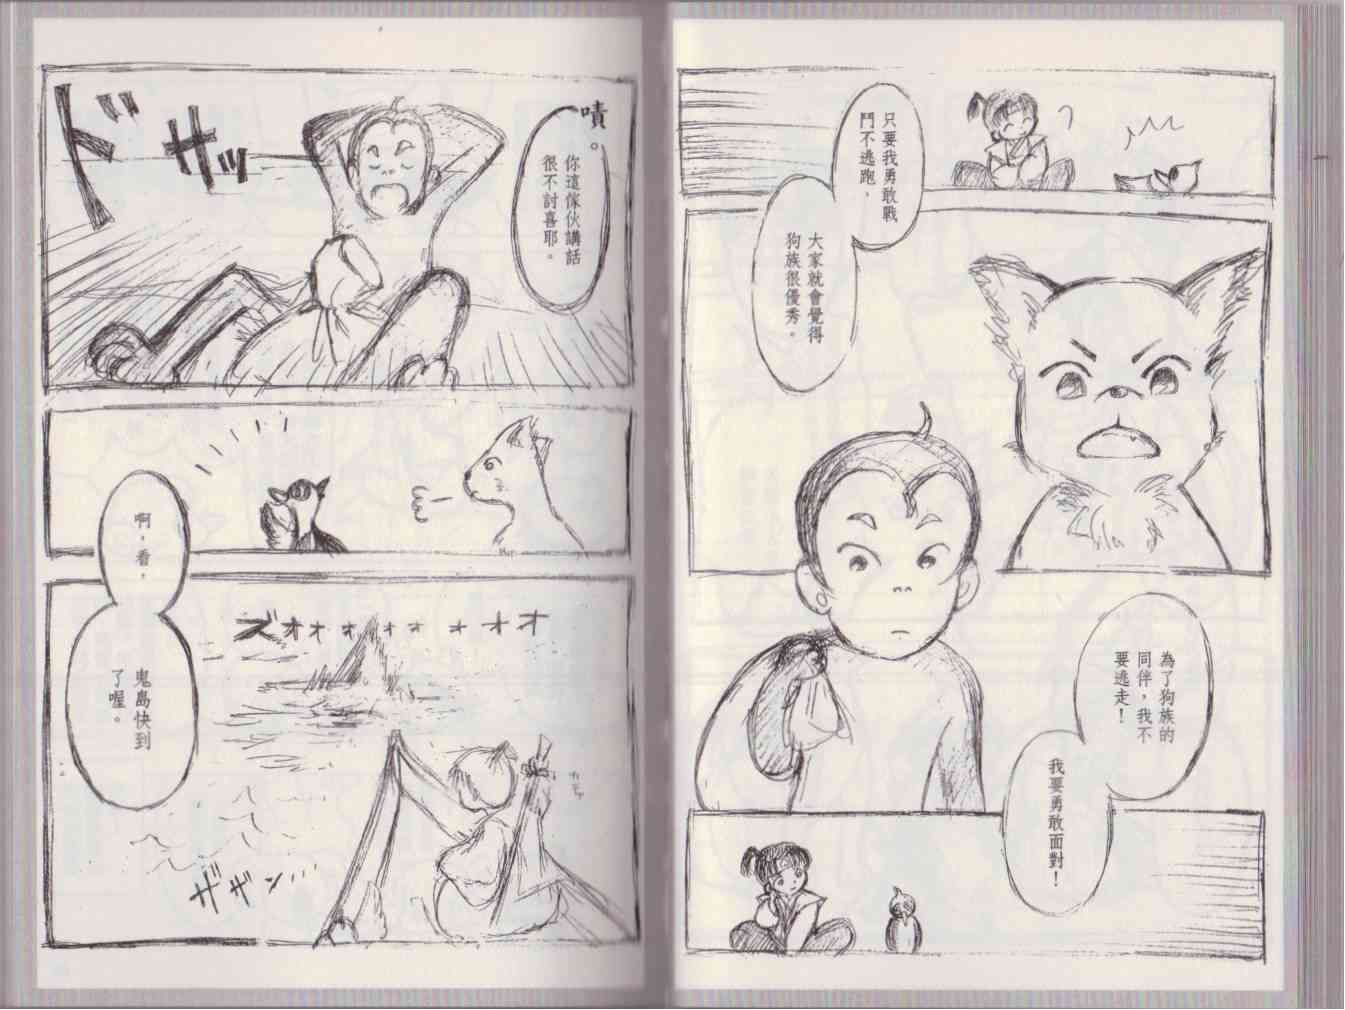 只要我勇敢戰
鬥不逃跑，
大家就會覺得
狗族很優秀。
為了狗族的
同伴，我不
要逃走！
我要勇敢面對！
嘖。
你這傢伙講話
很不討喜耶。
ドサッ
啊，看，
鬼島快到
了喔。
ズオオオオオオオオ
ザザン…